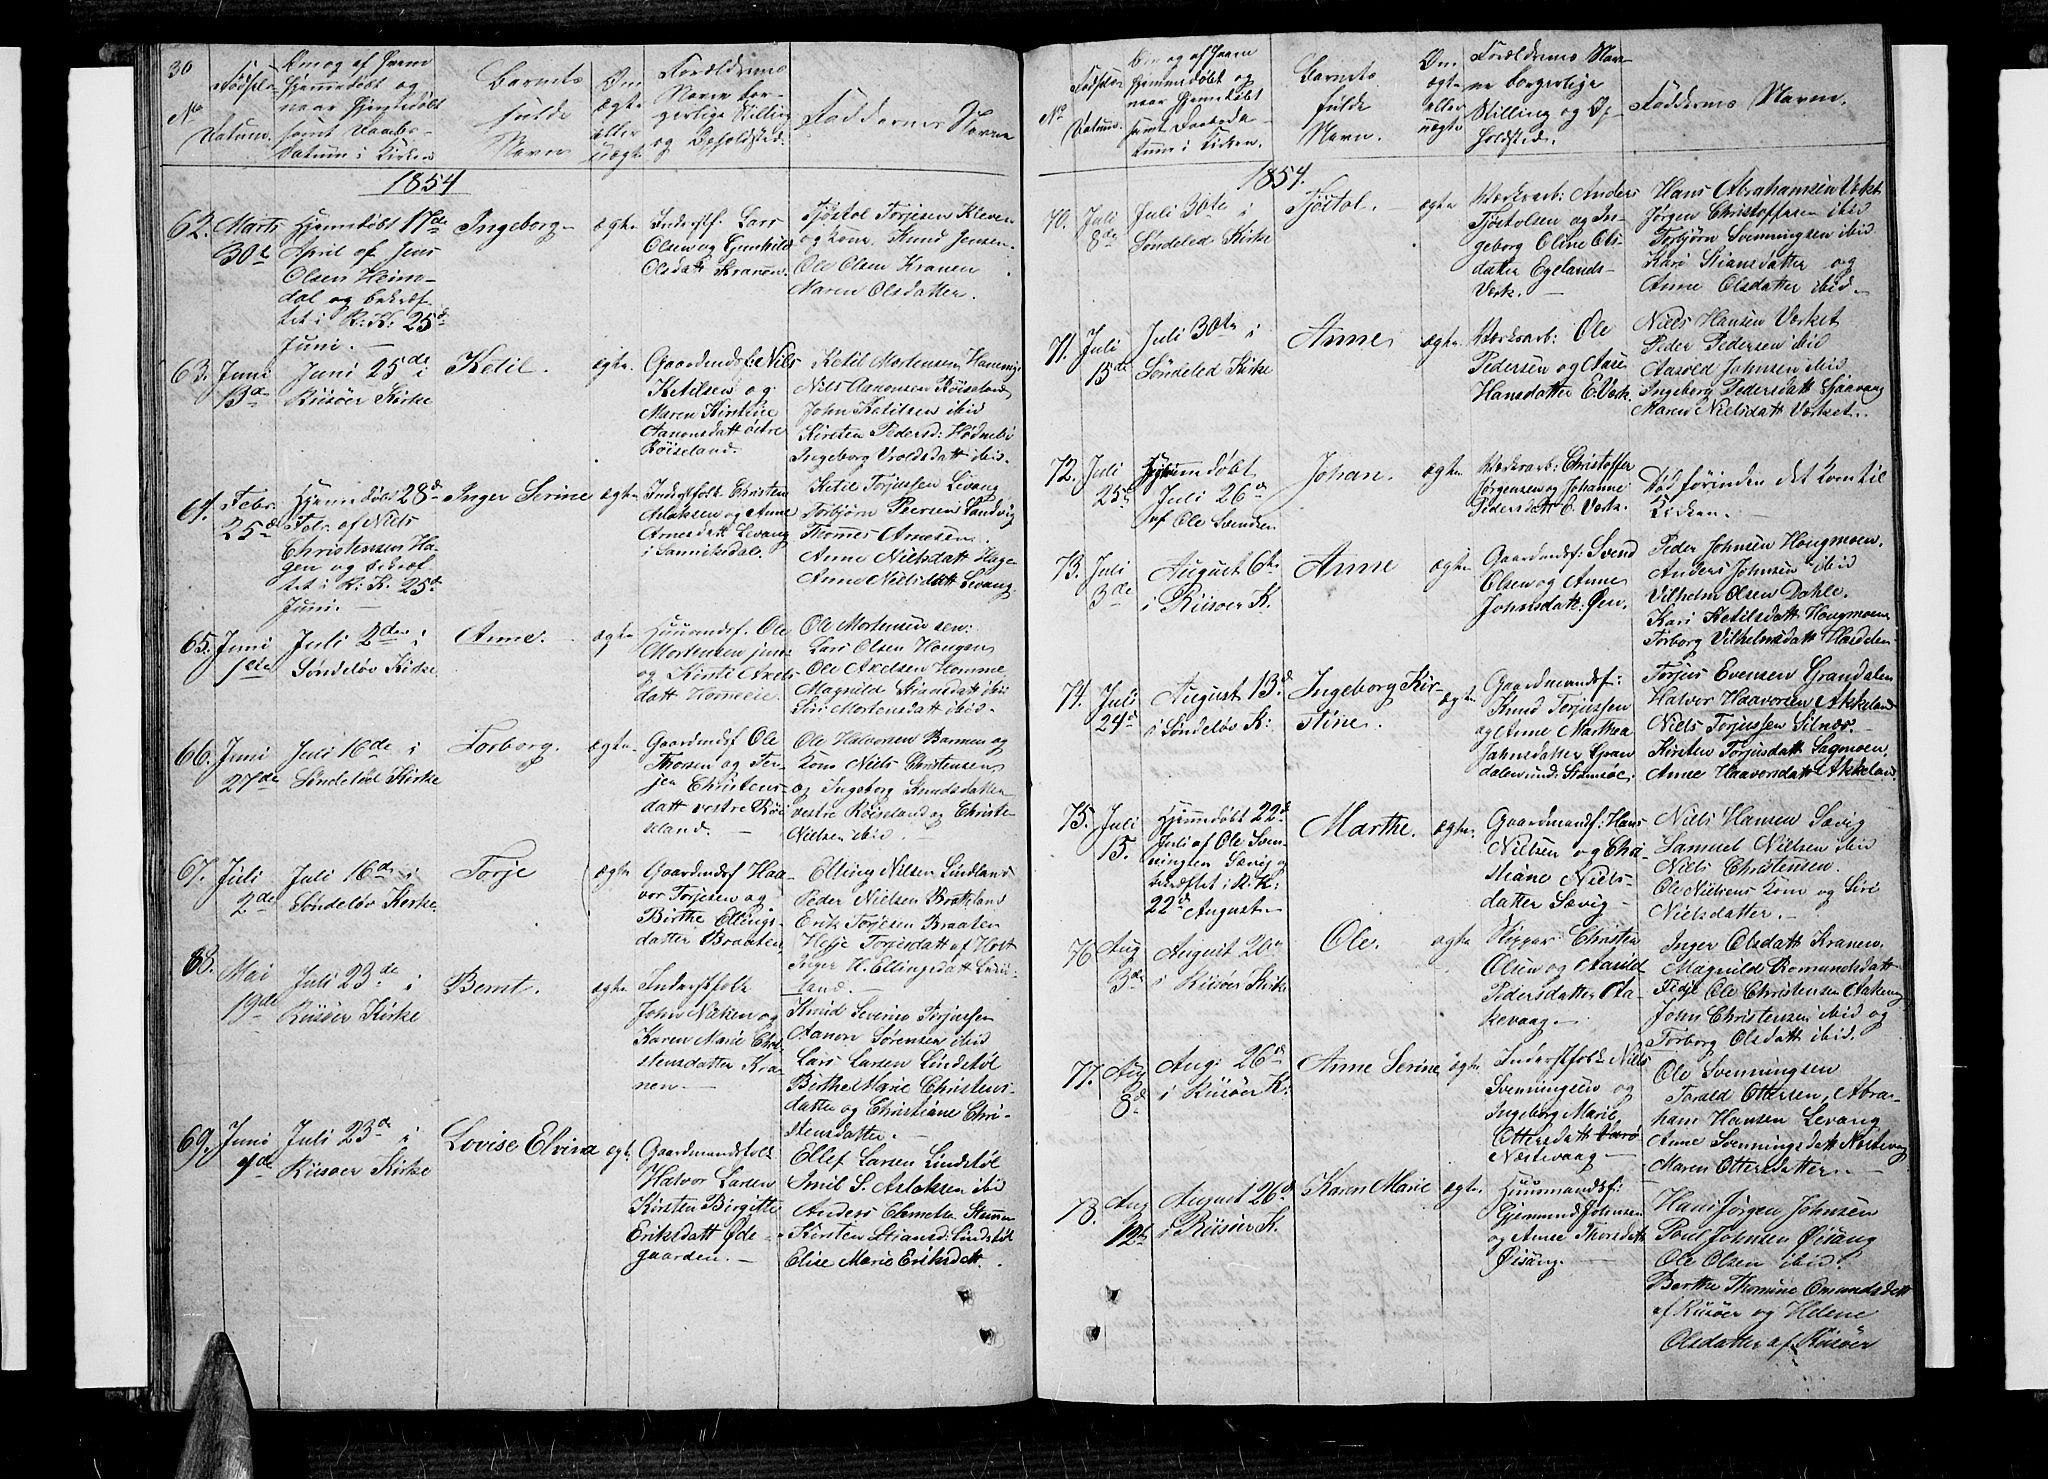 30
No
Fødsels-
Datum.
Om og af hvem
Hjemmedøbt og
naar Hjemmedøbt
samt Daabs-
Datum i Kirken
Barnets
fulde
Navn
Om
ægte
eller
uægte
Forældrenes
Navn bor-
gerlige Stilling
og Opholdssted.
Faddernes Navne
1854
62. Marts
30te
Hjemmdøbt 17de
April af Jens
Olsen Heim-
dal og bekræf-
tet i R: K: 25de
Juni. —
Ingeborg
ægte
Inderstf. Lars
Olsen og Gunhild
Olsdatt Kranen.
Tjöstol Torjesen Kleven
og kone. Knud Jensen.
Ole Olsen Kranen
Maren Olsdatter.
63. Juni
13de
Juni 25de i
Riisøer Kirke
Ketil.
ægte
Gaardmdsf: Niels
Ketilsen og
Maren Kirstine
Aanonsdatt östre
Röiseland.
Ketil Mortensen
Niels Aanonsen Röiseland
John Ketilsen ibid
Kirsten Pedersd: Hødnebö
Ingeborg Vroldsdatt ibid.
64. Febr.
25de
Hjemmdøbt 28de
Febr. af Niels
Christensen Ha-
gen og bekræf-
tet i R. K. 25de
Juni. —
Inger Serine
ægte
Inderstfolk Christen
Aslaksen og Anne
Arnesdatt Levang
i Sannikedal.
Ketil Torjussen Levang
Torbjörn Peersen Sandvig
Thomes Arnesen.
Anne Nielsdatt Hage
Anne Nielsdatt Levang.
65. Juni
1ste
Juli 2den i
Söndeløv Kirke
Anne.
ægte
Huusmandsf. Ole
Mortensen jun:
og Kirsti Axels-
datt Homme.
Ole Mortensen sen:
Lars Olsen Hougen
Ole Axelsen Homme
Magnild Stiansdatt ibid
Siri Mortensdatt ibid.
66. Juni
27de
Juli 16de i
Søndeløv Kirke
Torborg.
ægte
Gaardmdsf Ole
Thorsen og Ter-
jen Christens-
datt vestre Röi-
seland. —
Ole Halvorsen Barmen og
Kone Niels Christensen
og Ingeborg Knudsdatter
vestre Röiseland og Christe
Nielsen ibid.
67. Juli
2de
Juli 16de i
Søndeløv Kirke
Torje
ægte
Gaardmdsf Haa-
vor Torjesen og
Birthe Ellings-
datter Braaten
Elling Nilsen Lindland
Peder Nielsen Brokland
Erik Torjesen Braaten
Helje Torjesdatt af Holt
Inger H. Ellingsdatt Lind-
land. —
68. Mai
19de
Juli 23de i
Riisøer Kirke
Bernt.
ægte
Inderstfolk
John Nielsen og
Karen Marie Chri-
stensdatter Kra-
nen —
Knud Severins Torjussen
Aanon Sörensen ibid
Lars Larsen Lindstöl
Birthe Marie Christens-
datter og Christiane Chri-
stensdatter. —
69. Juni
4de
Juli 23de i
Riisøer Kirke
Lovise Elvine
ægte
Gaardmandsfolk
Halvor Larsen
Kirsten Birgitte
Eriksdatt Øde-
gaarden. —
Ellef Larsen Lindstöl
Emil S. Aslaksen ibid
Anders Clemetsen
Kirsten Stiansd: Lindstöl
Elise Marie Eriksdatt.
No
Fødsels-
Datum.
Om og af hvem
Hjemmedøbt og
naar Hjemmedøbt
samt Daabsda-
tum i Kirken.
Barnets
fulde
Navn.
Om
ægte
eller
uægte
Forældrenes Nav-
ne borgerlige
Stilling og Op-
holdssted.
Faddernes Navne.
1854.
70. Juli
8de
Juli 30te i
Söndeled Kirke
Tjöstol.
ægte
Værksarb: Anders
Tjöstolsen og In-
geborg Oline Ols-
datter Egelands-
Værk. —
Hans Abrahamsen Værket
Jörgen Christoffersen ibid
Torbjørn Svenningsen ibid
Kari Stiansdatter og
Anne Olsdatter ibid.
71. Juli
15de
Juli 30te i
Søndeled Kirke
Anne
ægte
Værksarb: Ole
Pedersen og Aase
Hansdatter E. Værk.
Niels Hansen Værket
Peder Pedersen ibid
Aasold Johnsen ibid
Ingeborg Pedersdatt Sjaavaag
Maren Nielsdatt Værket.
72. Juli
25de
Hjemmdøbt
Juli 26de
af Ole Svendsen
Johan.
ægte
Værksarb: Christoffer
Jørgensen og Johanne
Pedersdatt E. Værk.
Död förinden det kom til
Kirken. —
73. Juli
3de
August 6te
i Riisøer K.
Anne
ægte
Gaardmdsf: Svend
Olsen og Anne
Johnsdatt. Øen.
Peder Johnsen Hougmoen.
Anders Johnsen ibid
Vilhelm Olsen Dahle.
Kari Ketilsdatt Hougmoen
Torborg Vilhelmsdatt
74. Juli
24de
August 13de
i Søndeløv K:
Ingeborg Kir-
stine.
ægte
Gaardmandsf:
Knud Torjussen
og Anne Marthea
Jahnsdatter Gran-
dalen
Torjus Evensen Grandalen
Halvor Haavorsen Akkeland
Niels Torjussen Silnæs.
Kirsten Torjusdatt. Sagmoen
Anne Haavorsdatt Akkeland
75. Juli
15.
Hjemmdøbt 22de
Juli af Ole Sven-
ningsen Sævig og
bekræftet i R. K:
22de August. —
Marthe.
ægte
Gaardmandsf: Hans
Nielsen og Chri-
stiane Niels-
datter Sævig —
Niels Hansen Sævig
Samuel Nielsen ibid
Niels Christensen.
Ole Nielsens Kone og Siri
Nielsdatter. —
76 Aug
3de
August 20de
i Riisøer Kirke
Ole.
ægte
Skipper Christen
Olsen og Aasild
Pedersdatter Aa-
kevaag —
Inger Olsdatt Kranen.
Magnild Romundsdatt
Fedje Ole Christensen Aakevaag
John Christensen ibid og
Torborg Olsdatt ibid.
77. Aug
8de
Aug: 26de
i Riisøer K:
Anne Serine
ægte
Inderstfolk Niels
Svenningsen og
Ingeborg Marie
Ottersdatt
Næstevaag —
Ole Svenningsen
Tarald Ottersen, Abra-
ham Hansen Levang
Anne Svenningsdatt Næstevaag
Maren Ottersdatter. —
78. Aug
12te
August 26de
i Riisøer K.
Karen Marie
ægte
Huusmandsf:
Gjermund Johnsen
og Anne Thorsdatt
Øisang. —
Hans Jørgen Johnsen
Poul Johnsen Øisang
Ole Olsen ibid.
Berthe Thomine Omundsdatt
af Riisøer og Helene
Olsdatter af Riisöer